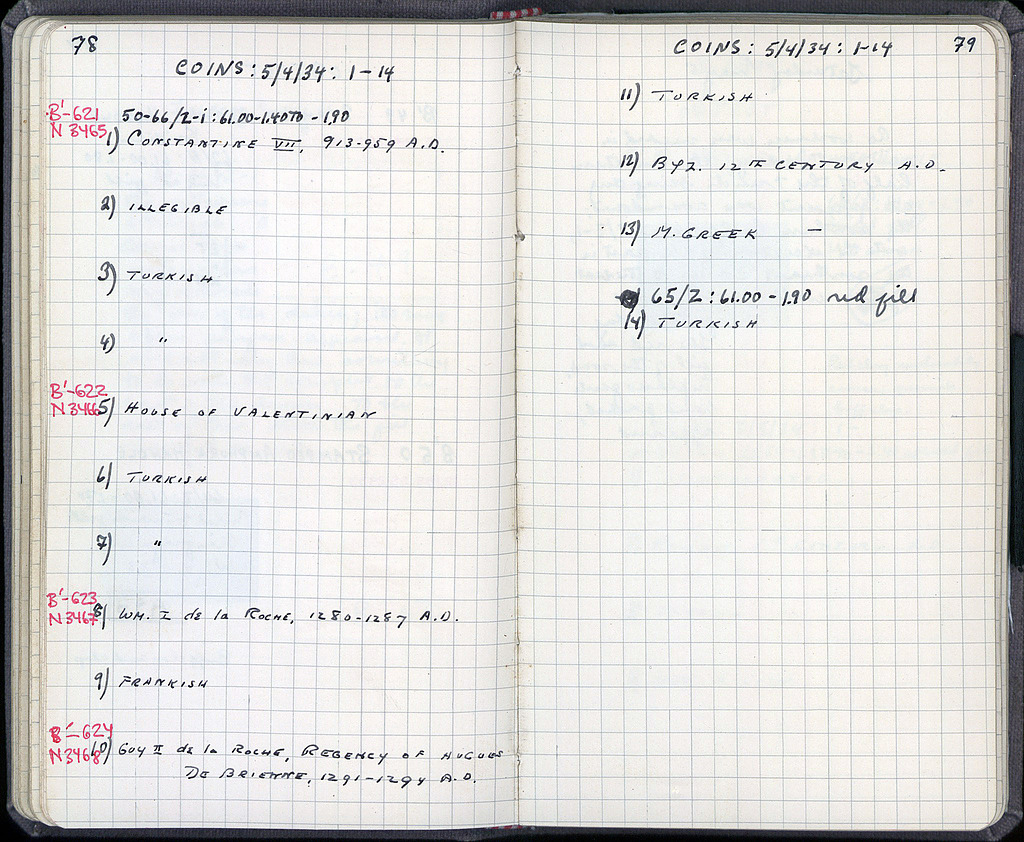 78
COINS: 5/4/34: 1-14
B'-621
N 3465
50-66/Z-i: 61.00-1.40 TO -1.90
1) CONSTANTINE VII, 913-959 A.D.
2) ILLEGIBLE
3) TURKISH
4) "
B'-622
N 3466
5) HOUSE OF VALENTINIAN
6) TURKISH
7) "
B'-623
N 3467
8) WM. I de la ROCHE, 1280-1287 A.D.
9) FRANKISH
B'-624
N 3468
10) GUY II de la ROCHE, REGENCY OF HUGUES
DE BRIENNE, 1291-1294 A.D.
COINS: 5/4/34: 1-14
79
11) TURKISH
12) BYZ. 12TH CENTURY A.D.
13) M. GREEK —
65/Z: 61.00-1.90 red fill
14) TURKISH